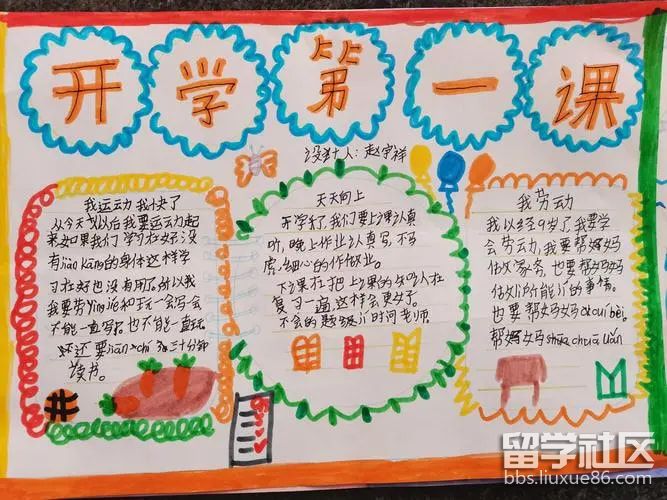 开学第一课
设计人：赵宇祥
我运动 我快了
从今天以后我要运动起
来如果我们学习在好没
有jiàn kāng的身体这样学
习在好也没有用了所以我
我要劳yìng jié和玩一会写一会
不能一直写不也不能一直玩
还要jiān chí 三十分钟
读书。
天天向上
开学了，我们要上课认真
听，晚上作业认真写，不马
虎，细心的作做业。
下课在把上课的知识在
复习一遍这样会更好了
不会的题及时问老师。
我劳动
我以经9岁了，我要学
会劳动，我要帮妈妈
做家务，也要帮妈妈
做所能的事情。
也要帮妈妈
帮妈妈
留学社区
bbs.liuxue86.com